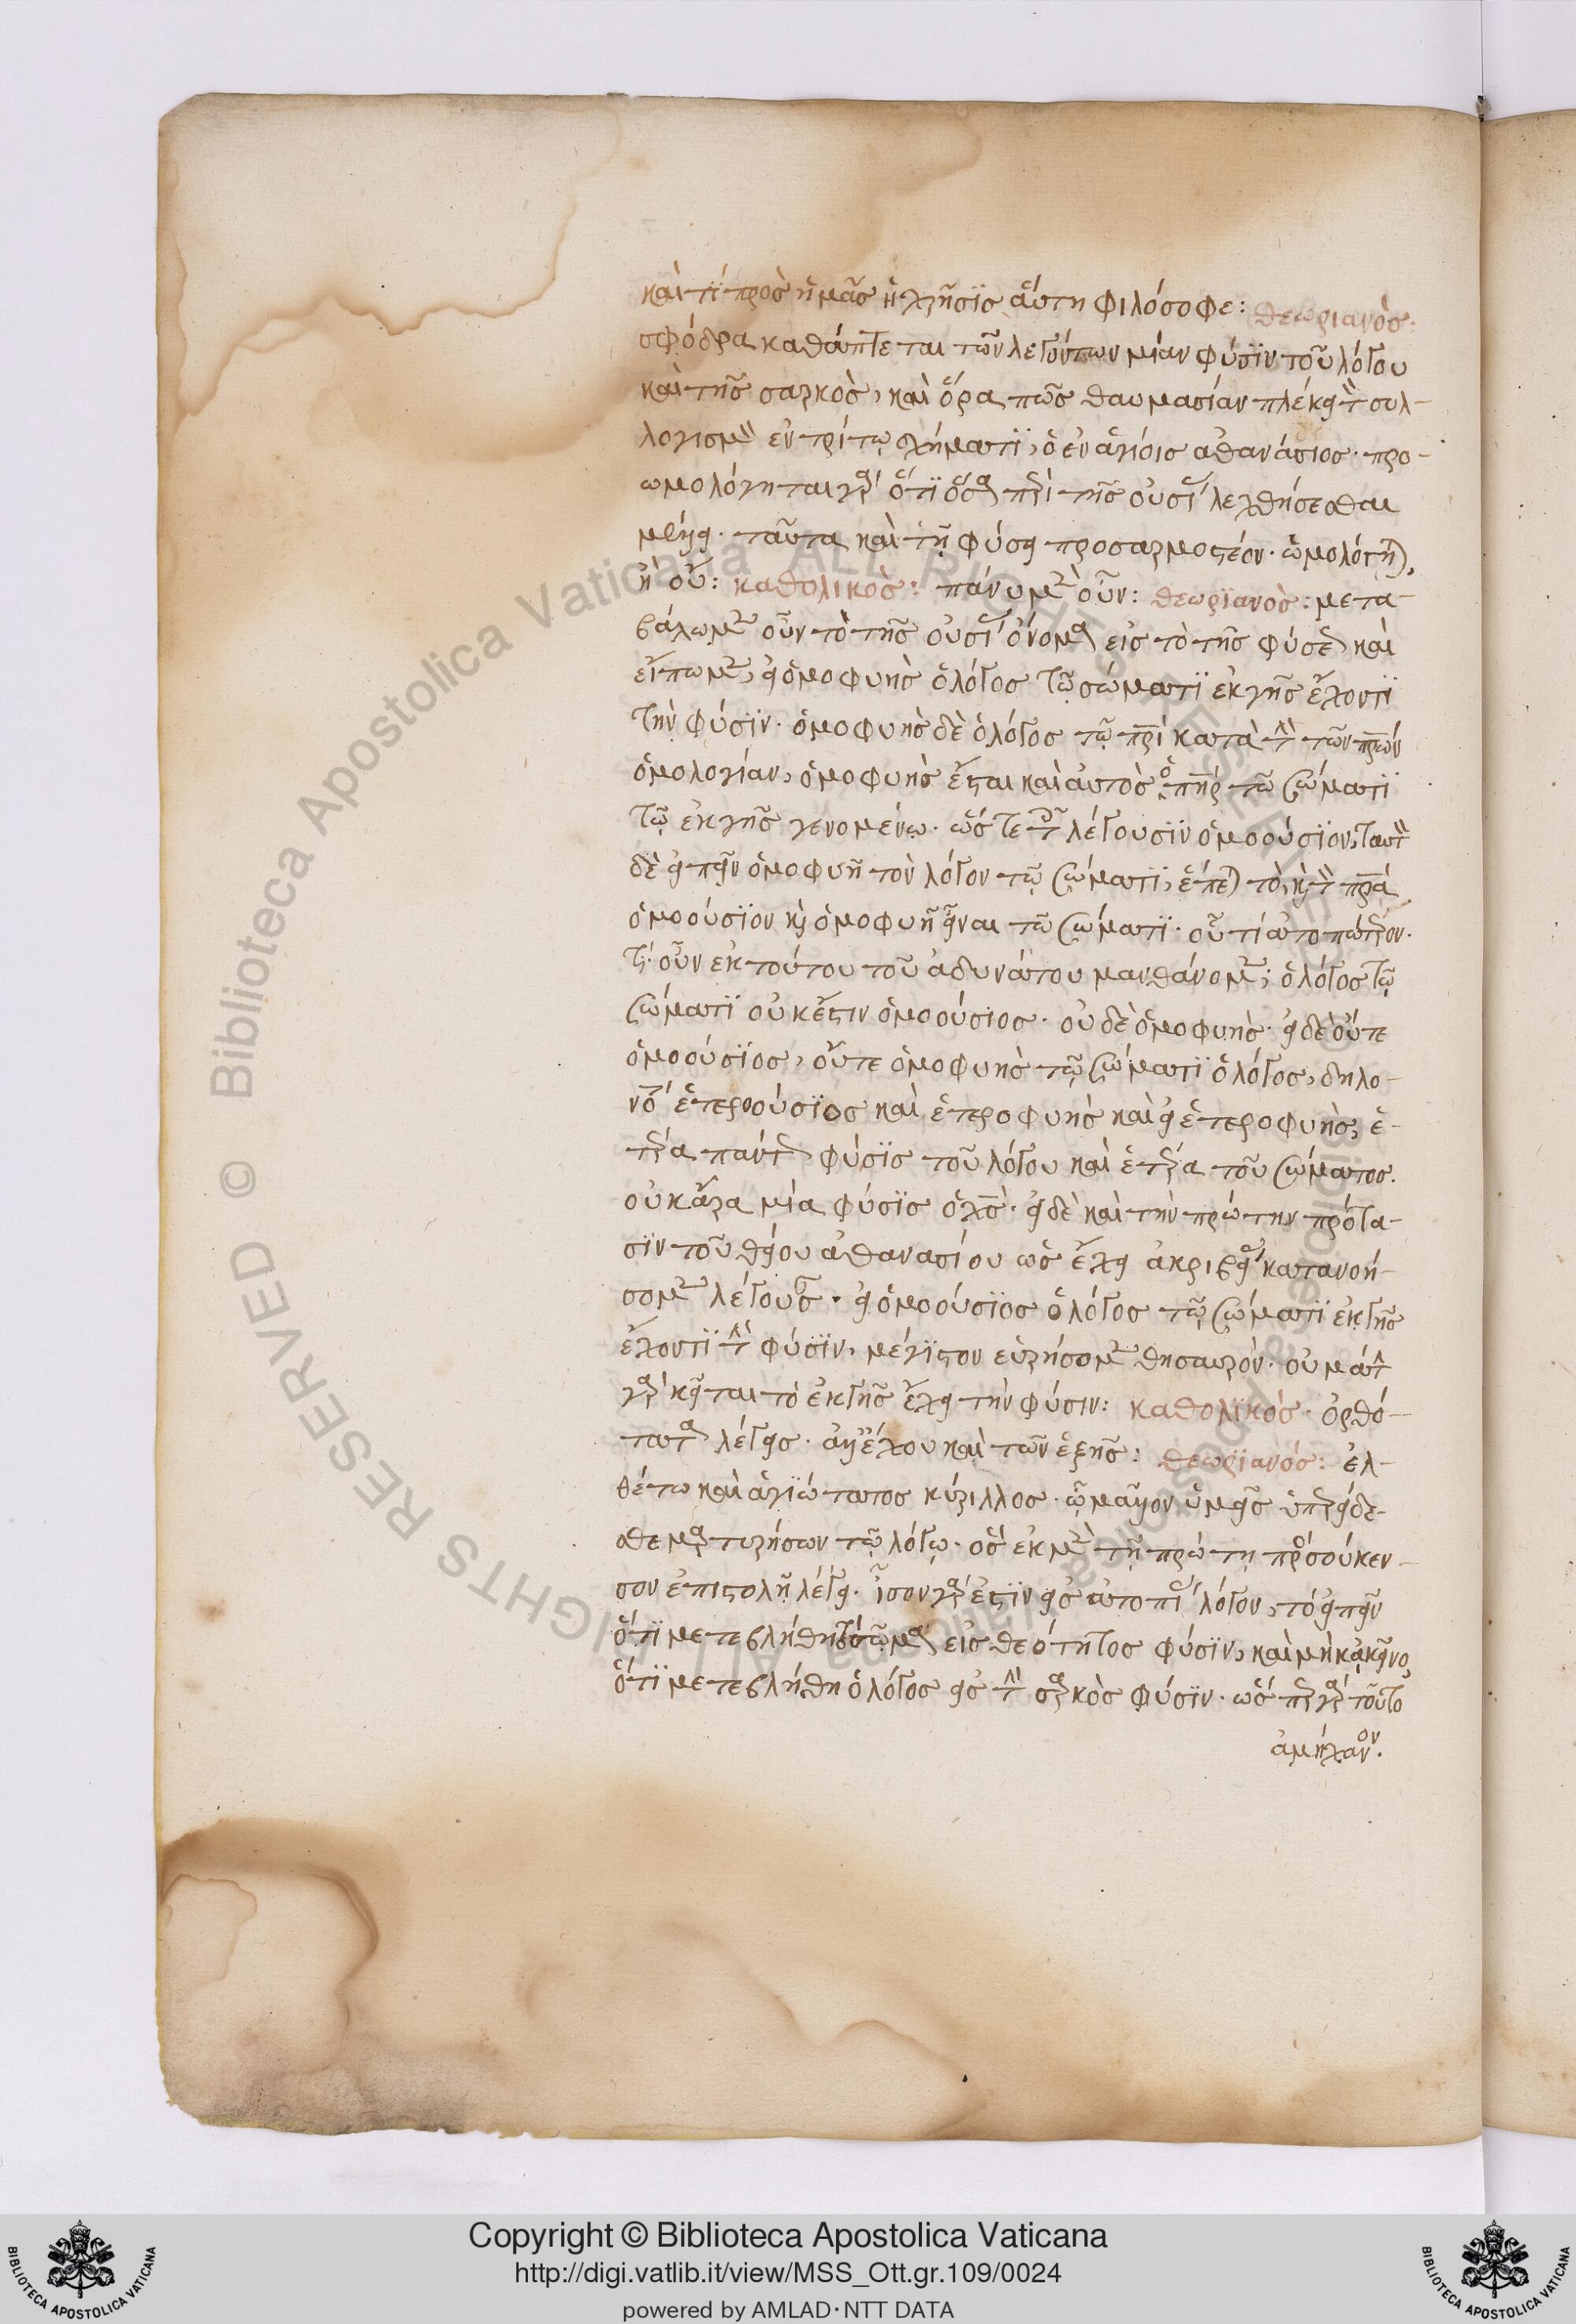 καὶ τί πρὸς ἡμᾶς ἡ χρῆσις αὕτη φιλόσοφε: θεωριανὸς:
σφόδρα καθάπτεται τῶν λεγόντων μίαν φύσϊν τοῦ λόγου
καὶ τῆς σαρκὸς, καὶ ὅρα πῶς θαυμασίαν πλέκει τὸν συλ-
λογισμὸν ἐν τρίτῳ σχήματϊ, ὁ ἐν ἁγίοις ἀθανάσιος. προ-
ωμολόγηται γὰρ ὅτϊ ὅσα περὶ τῆς οὐσίας λεχθήσεσθαι
μέλλει. ταῦτα καὶ τῇ φύσει προσαρμοστέον. ὡμολόγηται,
ἢ οὔ: καθολικὸς: πάνυ μὲν οὖν: θεωρϊανὸς: μετα-
βάλωμεν οὖν τὸ τῆς οὐσίας ὄνομα εἰς τὸ τῆς φύσεως καὶ
εἴπωμεν, εἰ ὁμοφυὴς ὁ λόγος τῷ σώματϊ ἐκ γῆς ἔχοντϊ
τὴν φύσϊν. ὁμοφυὴς δὲ ὁ λόγος τῷ πρὶ κατὰ τὴν τῶν πρων
ὁμολογίαν, ὁμοφυὴς ἔσται καὶ αὐτὸς ὁ πὴρ τῷ σώματϊ
τῷ ἐκ γῆς γενομένῳ. ὥστε τοῦ λέγουσϊν ὁμοούσϊον, ταυτὸν
δὲ εἰπεῖν ὁμοφυῆ τὸν λόγον τῷ σώματϊ, ἕπεται τὸ, καὶ τὸν πρα
ὁμοούσϊον καὶ ὁμοφυῆ εἶναι τῷ σώματϊ. οὗ τί ἀτοπώτερον.
τί οὖν ἐκ τούτου τοῦ ἀδυνάτου μανθάνομεν; ὁ λόγος τῷ
σώματϊ οὐκ ἔστιν ὁμοούσιος. οὐδὲ ὁμοφυὴς. εἰ δὲ οὔτε
ὁμοούσϊος, οὔτε ὁμοφυὴς τῷ σώματϊ ὁ λόγος, δηλο-
νότι ἑτεροούσϊος καὶ ἑτεροφυὴς καὶ εἰ ἑτεροφυὴς, ἑ-
τέρα πάντως φύσϊς τοῦ λόγου καὶ ἑτέρα τοῦ σώματος.
οὐκ ἄρα μία φύσϊς ὁ χς. εἰ δὲ καὶ τὴν πρώτην πρότα-
σϊν τοῦ θείου ἀθανασίου ὡς ἔχει ἀκριβείας κατανοή-
σομεν λέγουσαν. εἰ ὁμοούσϊος ὁ λόγος τῷ σώματϊ ἐκ γῆς
ἔχοντϊ τὴν φύσϊν, μέγϊστον εὑρήσομεν θησαυρόν. οὐ μάτην
γὰρ κεῖται τὸ ἐκ γῆς ἔχει τὴν φύσιν: καθολϊκὸς. ὀρθό-
τατα λέγεις. ἀλλ' ἔχου καὶ τῶν ἑξῆς: θεωρϊανός: ἐλ-
θέτω καὶ ἁγϊώτατος κύριλλος. ᾧ μᾶλλον ὑμεῖς ὑπερείδε-
σθε μαρτυρήσων τῷ λόγῳ. ὃς ἐκ μὲν τῇ πρώτῃ πρὸς σούκεν-
σον ἐπιστολῇ λέγει. ἶσον γάρ ἐστϊν εἰς ἀτοπίας λόγον, τὸ εἰπεῖν
ὅτϊ μετεβλήθη τὸ σῶμα εἰς θεότητος φύσϊν, καὶ μὴν κἀκεῖνο,
ὅτϊ μετεβλήθη ὁ λόγος εἰς τὴν σαρκὸς φύσϊν. ὥσπερ γὰρ τοῦτο
ἀμήχανον.
Copyright © Biblioteca Apostolica Vaticana
http://digi.vatlib.it/view/MSS_Ott.gr.109/0024
powered by AMLAD·NTT DATA